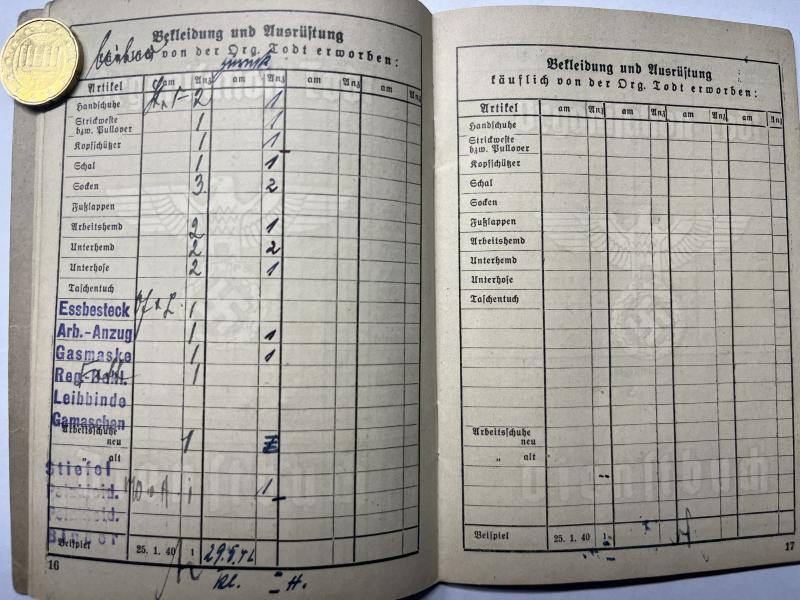 Bekleidung und Ausrüstung
von der Org. Todt erworben:
zurück
Artikel am Anz am Anz am Anz am Anz
Handschuhe 2 1
Strickweste
bzw. Pullover 1 1
Kopfschützer 1 1
Schal 1 1
Socken 3 2
Fußlappen
Arbeitshemd 2 1
Unterhemd 2 2
Unterhose 2 1
Taschentuch
Essbesteck 1
Arb.-Anzug 1 1
Gasmaske 1 1
1
Leibbinde
Gamaschen
Arbeitsschuhe
neu 1
„ alt
Stiefel
1
Beispiel 25. 1. 40 1 29.5.42
H.
16
Bekleidung und Ausrüstung
käuflich von der Org. Todt erworben:
Artikel am Anz am Anz am Anz am Anz
Handschuhe
Strickweste
bzw. Pullover
Kopfschützer
Schal
Socken
Fußlappen
Arbeitshemd
Unterhemd
Unterhose
Taschentuch
Arbeitsschuhe
neu
„ alt
Beispiel 25. 1. 40 1
17